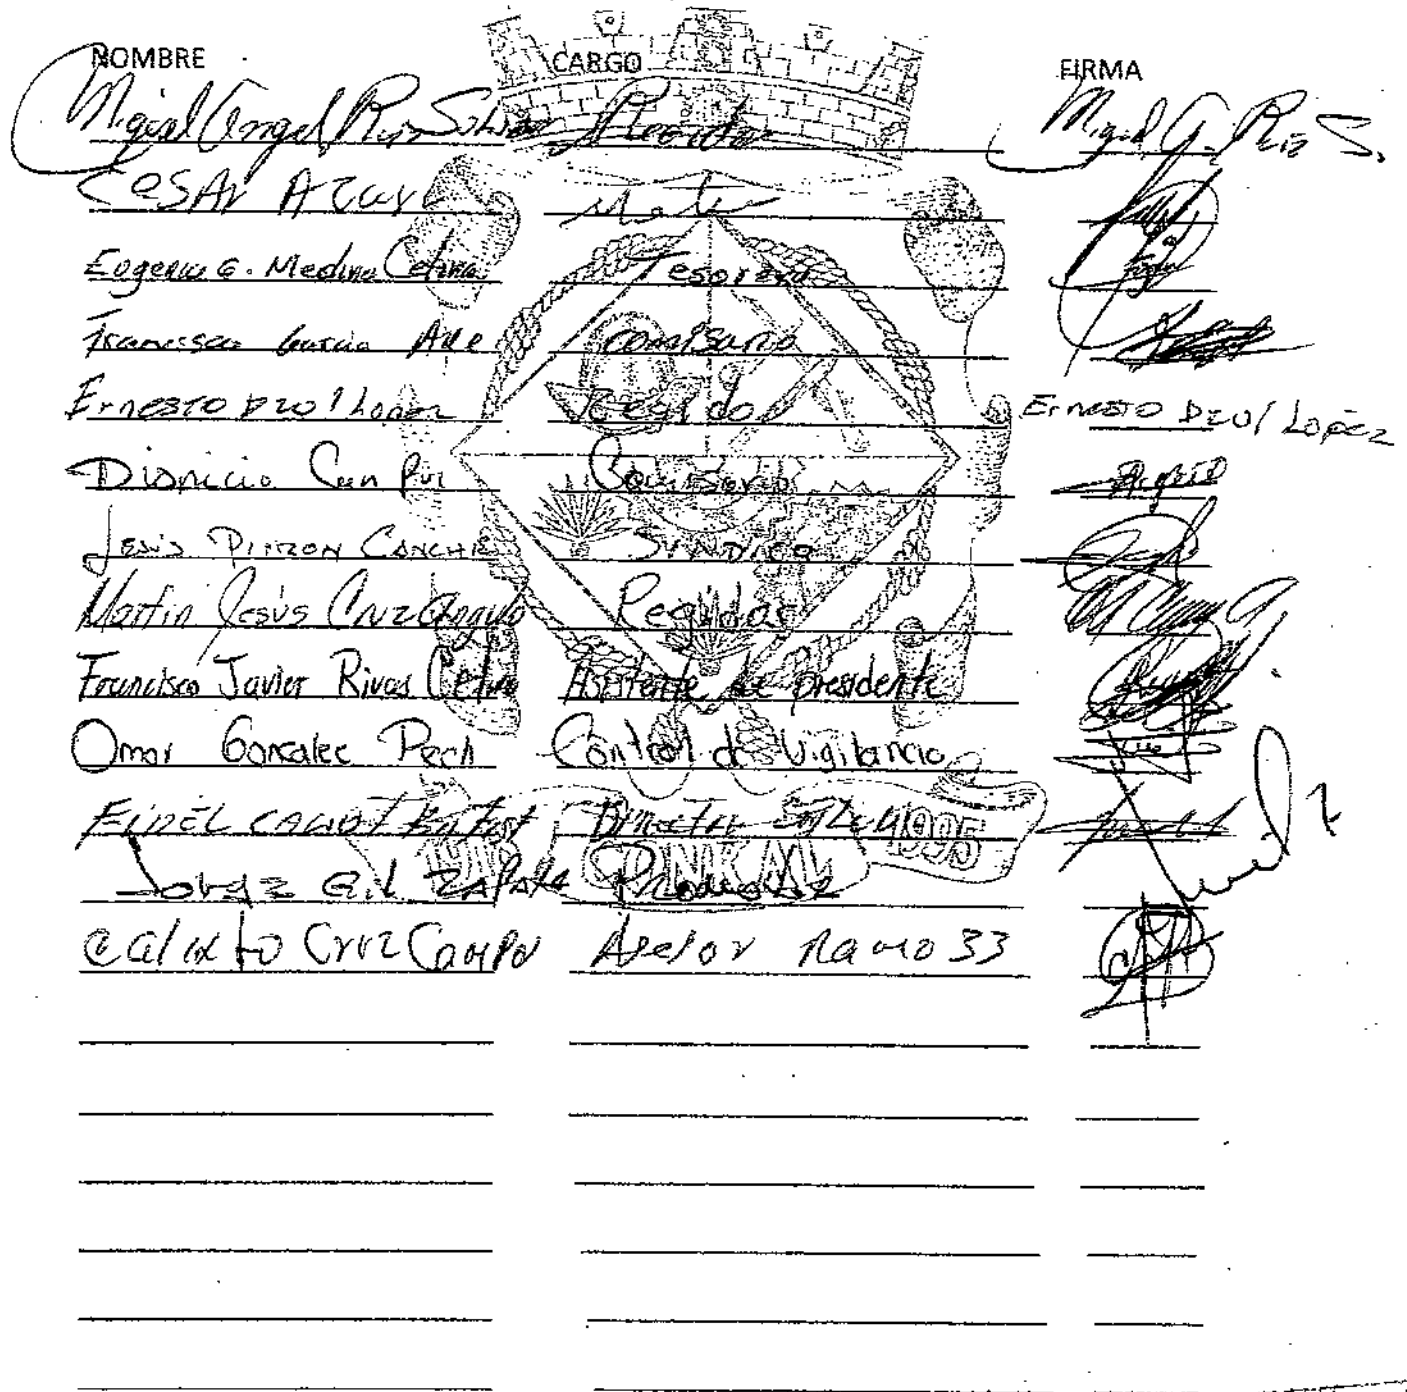 NOMBRE CARGO FIRMA
Miguel Angel Ruiz Regidor Miguel A. Ruiz S.
CESAr
Eugenio G. Medina Cetina Tesorero
Francisco Garcia Ake comisario
Ernesto Dzul Lopez Regidor Ernesto Dzul López
Dionicio Can Comisario
Jesús Pinzon Canche Sindico
Martin Jesús Cruz Angulo Regidor
Francisco Javier Rivas Cetina Asistente de presidente
Omar Gonzalez Pech Control de Vigilancia
FIDEL Director
CONKAL 1995
Jorge Gil Zapata Productor
Calixto Cruz Campo Asesor Ramo 33